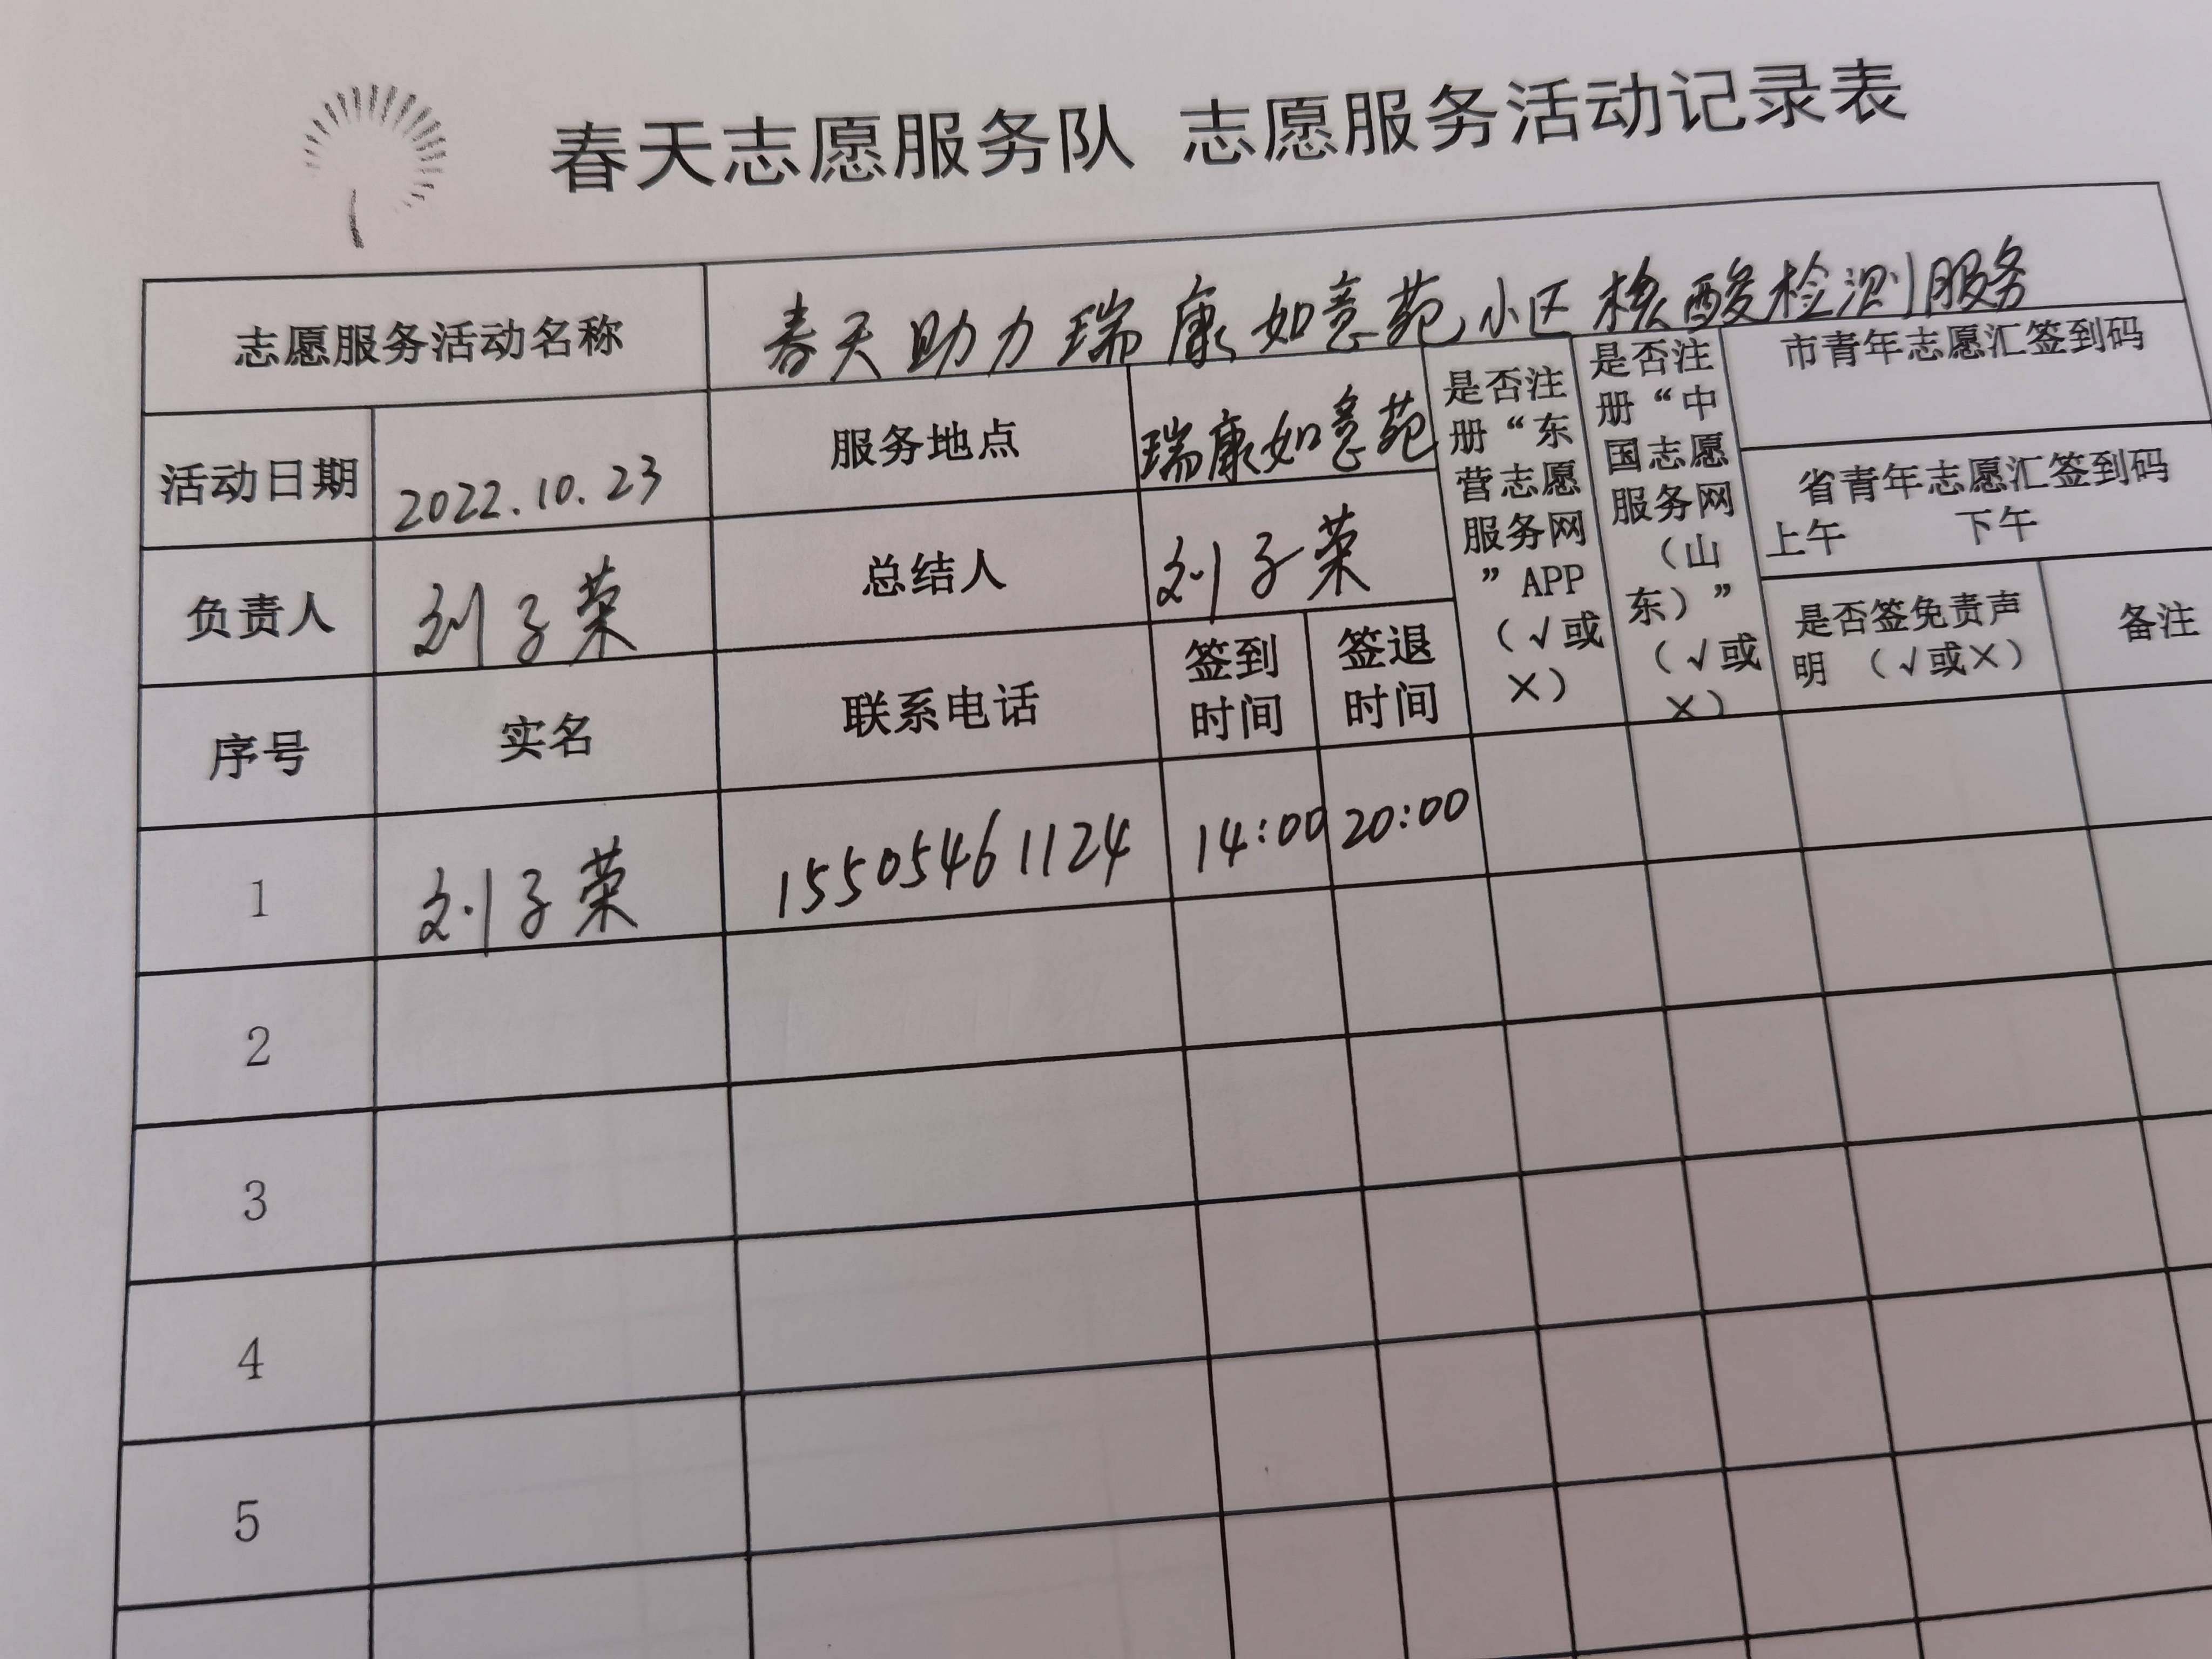 春天志愿服务队 志愿服务活动记录表
志愿服务活动名称 春天助力瑞康如意苑小区核酸检测服务
活动日期 2022.10.23 服务地点 瑞康如意苑
是否注
册“东
营志愿
服务网
”APP
（√或
×）
是否注
册“中
国志愿
服务网
（山
东）”
（√或
×）
市青年志愿汇签到码
省青年志愿汇签到码
上午 下午
负责人 刘子荣 总结人 刘子荣
是否签免责声
明 （√或×）
备注
序号 实名 联系电话
签到
时间
签退
时间
1 刘子荣 15505461124 14:00 20:00
2
3
4
5